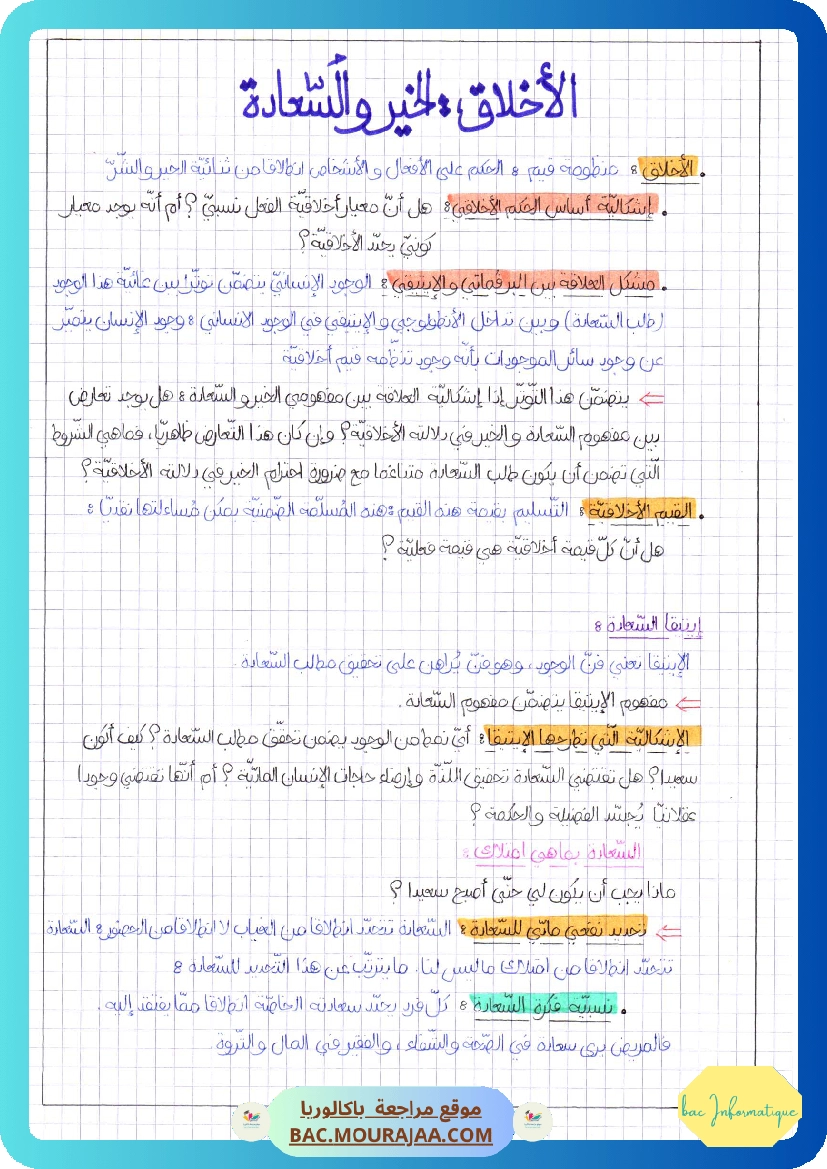 الأخلاق : الخير والسّعادة
. الأخلاق : منظومة قيم : الحكم على الأفعال و الأشخاص انطلاقا من ثنائيّة الخير والشّرّ
. إشكاليّة أساس الحكم الأخلاقي : هل أنّ معيار أخلاقيّة الفعل نسبيّ ؟ أم أنّه يوجد معيار
كونيّ يحدّد الأخلاقيّة ؟
. مشكل العلاقة بين البرقماتي والإيتيقي : الوجود الإنسانيّ يتضمّن توتّرا بين غائيّة هذا الوجود
(طلب السّعادة) وبين تداخل الأنطولوجي و الإيتيقي في الوجود الانساني : وجود الإنسان يتميّز
عن وجود سائر الموجودات بأنّه وجود تنظّمه قيم أخلاقيّة
⇐ يتضمّن هذا التّوتّر إذا إشكاليّة العلاقة بين مفهومي الخير و السّعادة : هل يوجد تعارض
بين مفهوم السّعادة و الخير في دلالته الأخلاقيّة ؟ وإن كان هذا التّعارض ظاهريّا، فماهي الشّروط
الّتي تضمن أن يكون طلب السّعادة متناغما مع ضرورة احترام الخير في دلالته الأخلاقيّة ؟
. القيم الأخلاقيّة : التّسليم بقيمة هذه القيم : هذه المُسلّمة الضّمنيّة يمكن مُساءلتها نقديّا :
هل أنّ كلّ قيمة أخلاقيّة هي قيمة فعليّة ؟
إيتيقا السّعادة :
الإيتيقا تعني فنّ الوجود ، وهو فنّ يُراهن على تحقيق مطلب السّعادة .
⇐ مفهوم الإيتيقا يتضمّن مفهوم السّعادة .
الإشكاليّة الّتي تطرحها الإيتيقا : أيّ نمط من الوجود يضمن تحقّق مطلب السّعادة ؟ كيف أكون
سعيدا ؟ هل تقتضي السّعادة تحقيق اللّذّة و إرضاء حاجات الإنسان المادّيّة ؟ أم أنّها تقتضي وجودا
عقلانيّا يُجسّد الفضيلة والحكمة ؟
السّعادة بماهي امتلاك :
ماذا يجب أن يكون لي حتّى أصبح سعيدا ؟
⇐ تحديد نفعي مادّي للسّعادة : السّعادة تتحدّد انطلاقا من الغياب لا انطلاقا من الحضور : السّعادة
تتحدّد انطلاقا من امتلاك ماليس لنا . ما يترتّب عن هذا التّحديد للسّعادة :
. نسبيّة فكرة السّعادة : كلّ فرد يحدّد سعادته الخاصّة انطلاقا ممّا يفتقد إليه .
فالمريض يرى سعادة في الصّحّة والشّفاء ، والفقير في المال والثّروة
موقع مراجعة باكالوريا
BAC.MOURAJAA.COM
bac Informatique